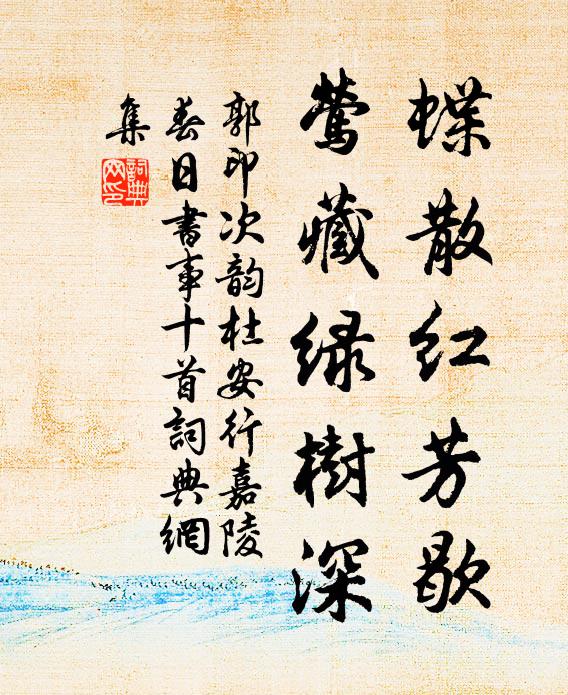 蝶散红芳歇
莺藏绿樹深
郭印次韵杜安行嘉陵
春日書事十首詞典網
集
詞典
网印